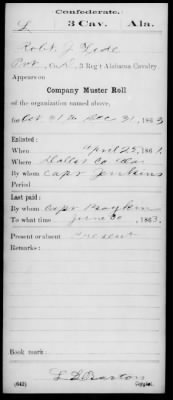 Confederate.
L 3 Cav. Ala.
Robt J
Pvt, Co. 3 Reg't Alabama Cavalry
Appears on
Company Muster Roll
of the organization named above,
for Oct 31 to Dec 31, 1863
Enlisted:
When April 25, 1861.
Where Dallas Co Ala
By whom Capt Jenkins
Period
Last paid:
By whom Capt
To what time June 30 1863.
Present or absent Present
Remarks:
Book mark:
(642) Copyist.